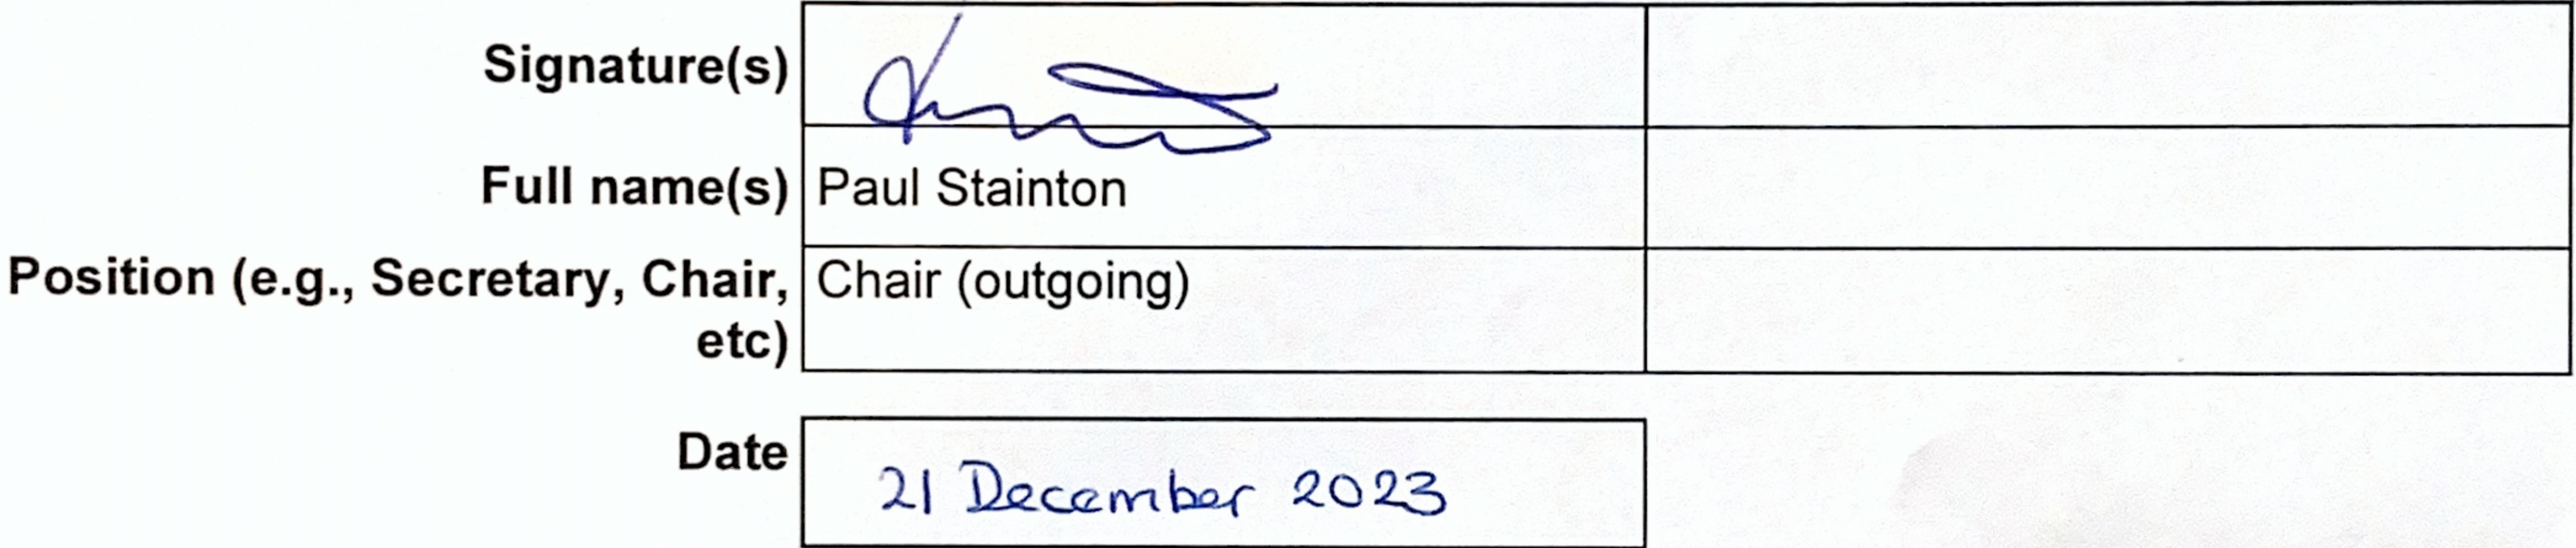 Signature(s)
Full name(s) Paul Stainton
Position (e.g., Secretary, Chair, Chair (outgoing)
etc)
Date 21 December 2023